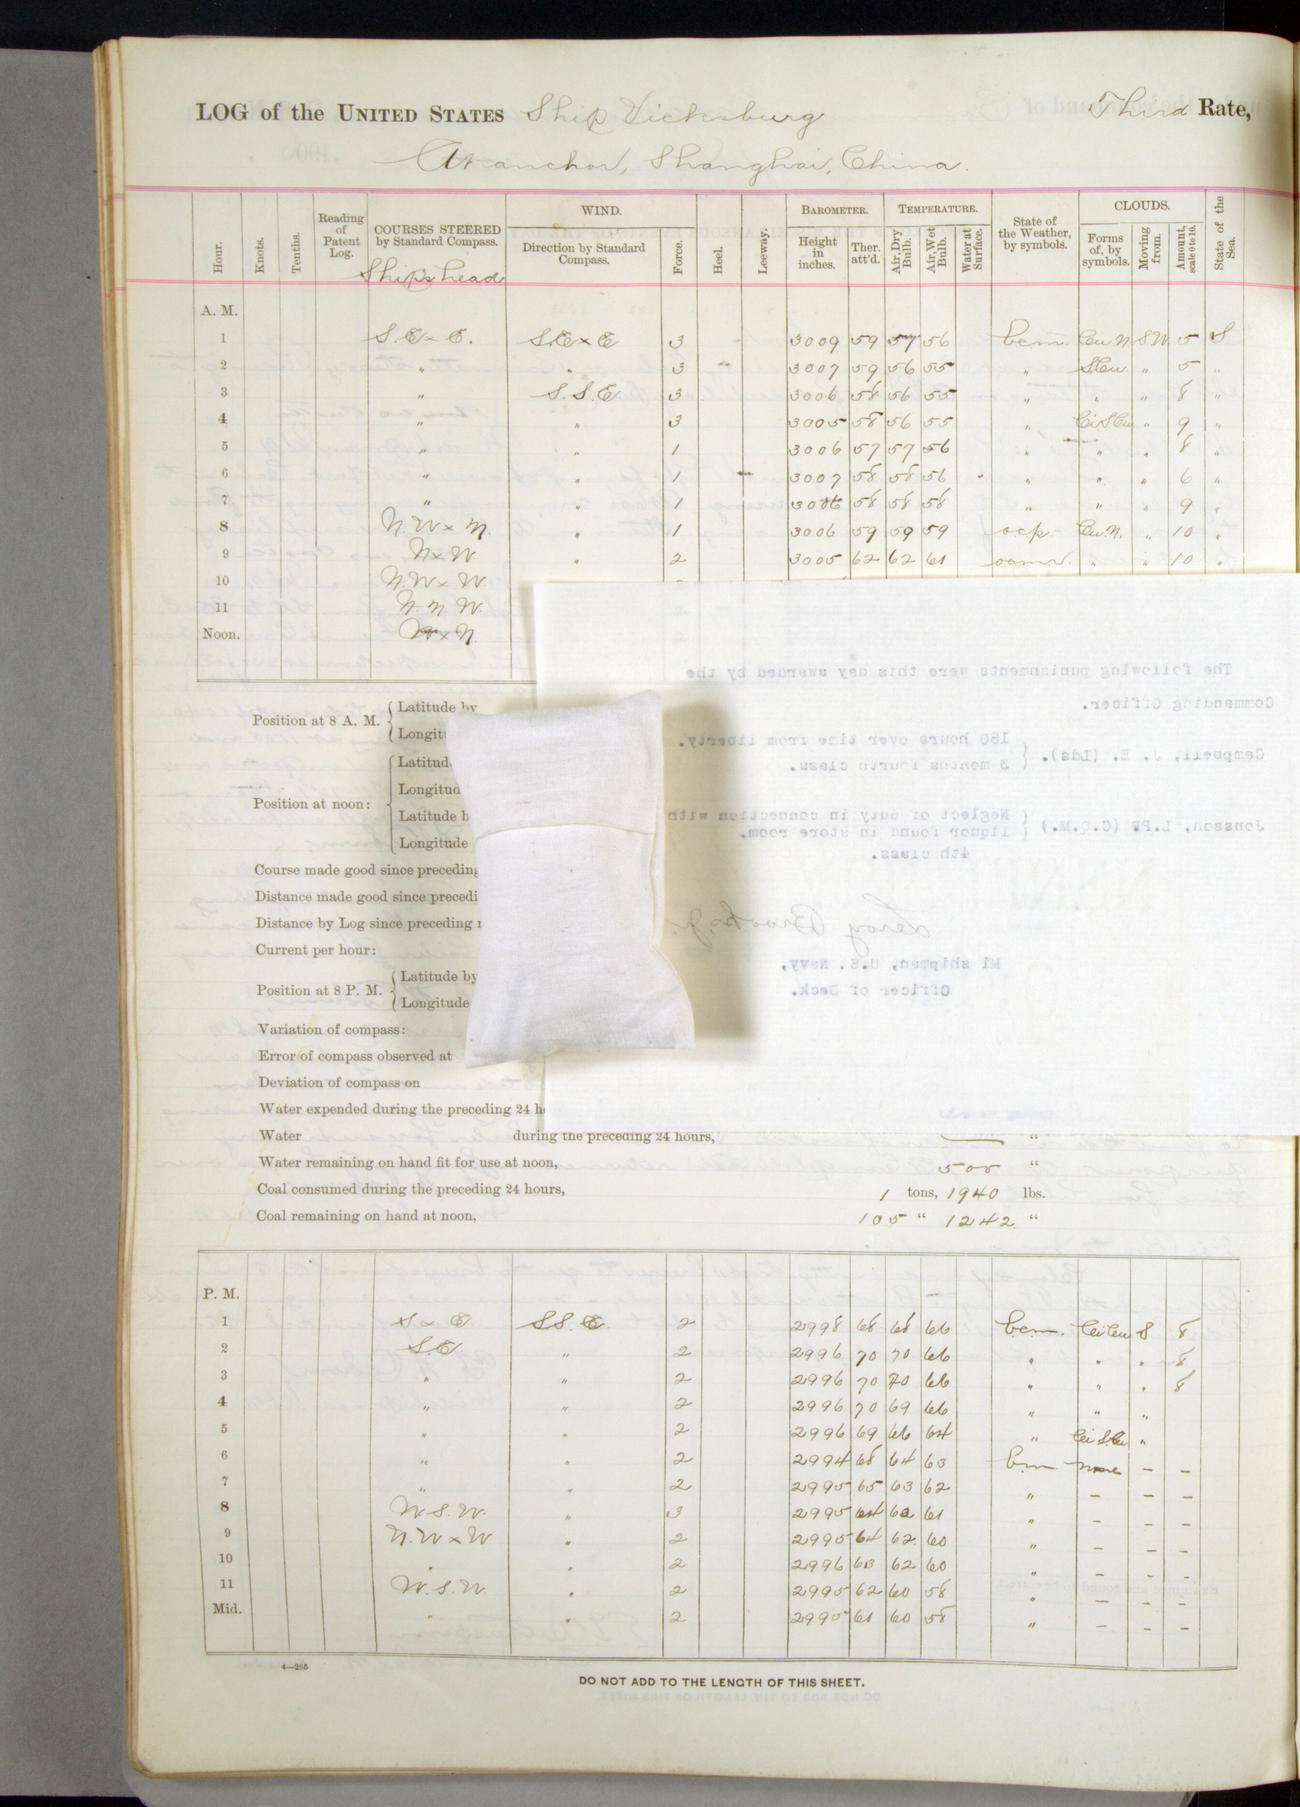 LOG of the UNITED STATES Ship Vicksburg Third Rate,
At anchor, Shanghai, China.
Hour. Knots. Tenths. Reading of Patent Log. COURSES STEERED by Standard Compass. WIND. Direction by Standard Compass. Force. Heel. Leeway. BAROMETER. Height in inches. Ther. att'd. TEMPERATURE. Air, Dry Bulb. Air, Wet Bulb. Water at Surface. State of the Weather, by symbols. CLOUDS. Forms of, by symbols. Moving from. Amount, scale 0 to 10. State of the Sea.
Ship's head
A. M.
1 S.E x E. S.E x E 3 3009 59 57 56 bcm Cu N SW 5 S
2 " " 3 3007 59 56 55 " SCu. " 5 "
3 " S.S.E. 3 3006 58 56 55 " " " 8 "
4 " " 3 3005 58 56 55 " CiSCu " 9 "
5 " " 1 3006 57 57 56 " " " 8 "
6 " " 1 3007 58 58 56 " " " 6 "
7 " " 1 3006 58 58 58 " " " 9 "
8 N.W x N. " 1 3006 59 59 59 ocp Cu.N. " 10 "
9 N x W " 2 3005 62 62 61 " " 10 "
10 N.W x W
11 N N W.
Noon. W x N
The following punishments were this day awarded by the
Commanding Officer.
Campbell, J. E. (Lds). { 180 hours over time from liberty.
3 months fourth class.
Jonsson, L.P. (C.Q.M.) { Neglect of duty in connection with
liquor found in store room.
4th class.
Leroy Brooks, Jr.
Mi shipman, U.S. Navy,
Officer of Deck.
Position at 8 A. M. { Latitude by
Longitu
Position at noon: { Latitud
Longitud
Latitude b
Longitude
Course made good since preceding
Distance made good since precedi
Distance by Log since preceding
Current per hour:
Position at 8 P. M. { Latitude by
Longitude
Variation of compass:
Error of compass observed at
Deviation of compass on
Water expended during the preceding 24 h
Water during the preceding 24 hours, "
Water remaining on hand fit for use at noon, 500 "
Coal consumed during the preceding 24 hours, 1 tons, 1940 lbs.
Coal remaining on hand at noon, 105 " 1242 "
P. M.
1 S x E S.S.E. 2 2998 68 68 66 bcm. CiCu S 8
2 S.E " 2 2996 70 70 66 " " " 8
3 " " 2 2996 70 70 66 " " " 8
4 " " 2 2996 70 69 66 " " "
5 " " 2 2996 69 66 64 " CiSCu "
6 " " 2 2994 68 64 63 bm none - -
7 " " 2 2995 65 63 62 " - - -
8 W.S.W. " 3 2995 64 62 61 " - - -
9 N.W x W " 2 2995 64 62 60 " - - -
10 " " 2 2996 63 62 60 " - - -
11 W.S.W " 2 2995 62 60 58 " - - -
Mid. " " 2 2995 61 60 58 " - - -
4—285
DO NOT ADD TO THE LENGTH OF THIS SHEET.